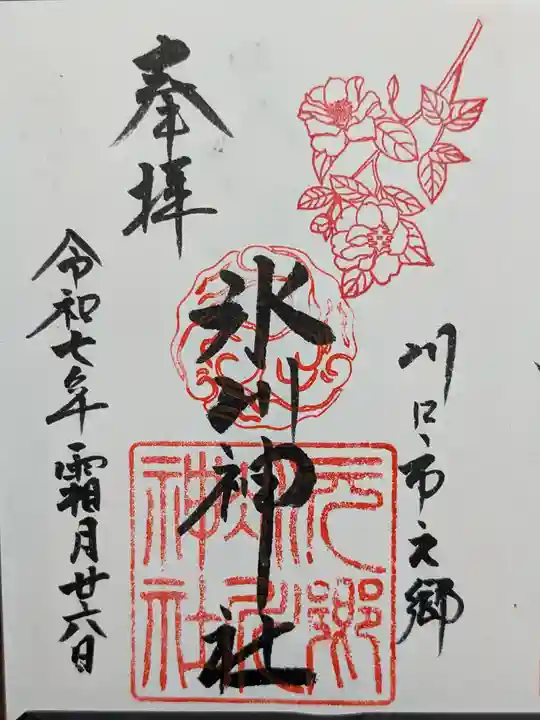 川口市元郷
奉拝
氷川神社
元郷
氷川
神社
令和七年霜月廿六日